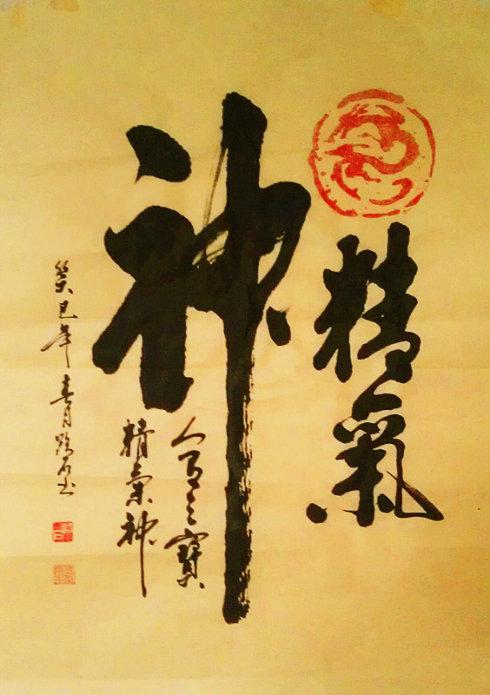 精氣
神
人有三寶
精氣神
癸巳年